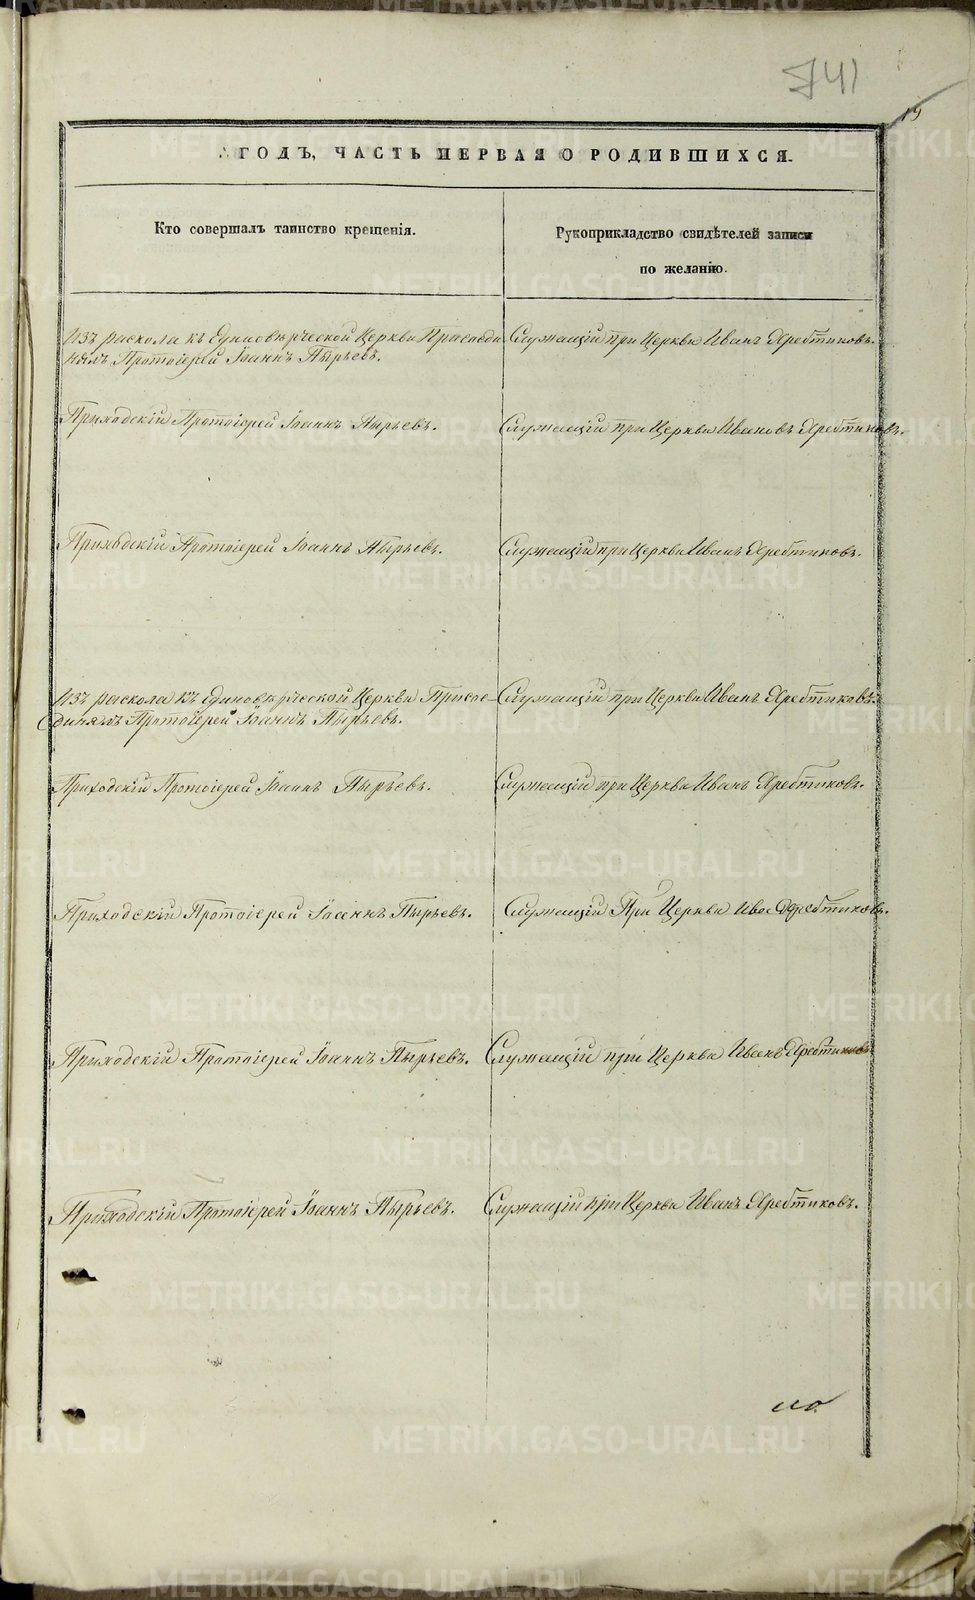 741
19
ГОДЪ, ЧАСТЬ ПЕРВАЯ О РОДИВШИХСЯ.
Кто совершалъ таинство крещенія.
Рукоприкладство свидѣтелей записи
по желанію.
Изъ раскола къ Единовѣрческой Церкви Присоеди
нилъ Протоіерей Іоаннъ Пырьевъ.
Служащій при Церкви Иванъ Хребтиковъ.
Приходскій Протоіерей Іоаннъ Пырьевъ.
Служащій при Церкви Ивановъ Хребтиковъ.
Приходскій Протоіерей Іоаннъ Пырьевъ.
Служащій при Церкви Иванъ Хребтиковъ.
Изъ раскола къ Единовѣрческой Церкви Присое-
динялъ Протоіерей Іоаннъ Пырьевъ.
Служащій при Церкви Иванъ Хребтиковъ.
Приходскій Протоіерей Іоаннъ Пырьевъ.
Служащій при Церкви Иванъ Хребтиковъ.
Приходскій Протоіерей Іоаннъ Пырьевъ.
Служащій При Церкви Хребтиковъ.
Приходскій Протоіерей Іоаннъ Пырьевъ.
Служащій при Церкви Иванъ Хребтиковъ
Приходскій Протоіерей Іоаннъ Пырьевъ.
Служащій при Церкви Иванъ Хребтиковъ.
METRIKI.GASO-URAL.RU